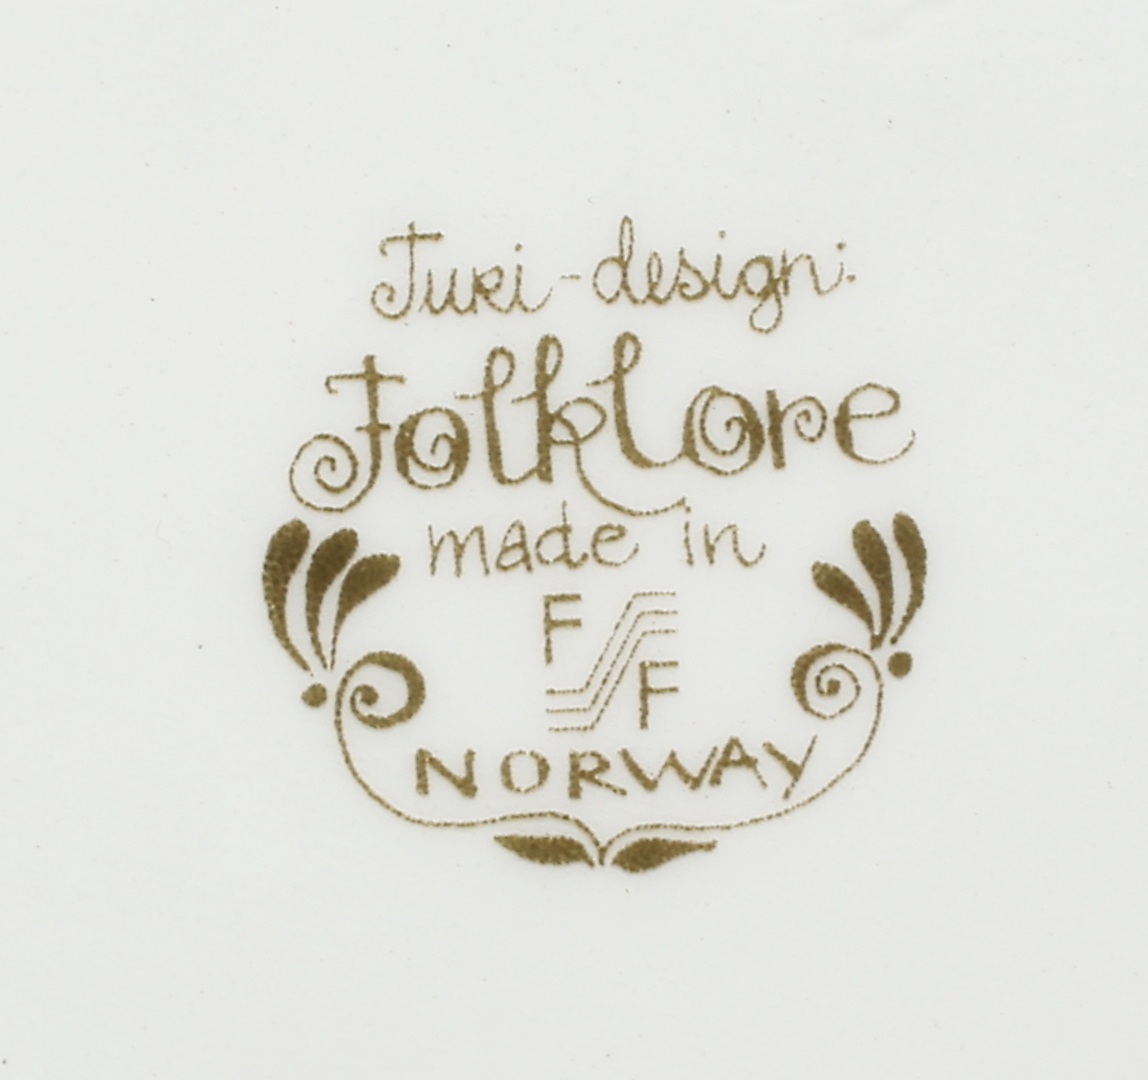 Turi-design:
Folklore
made in
F
F
NORWAY